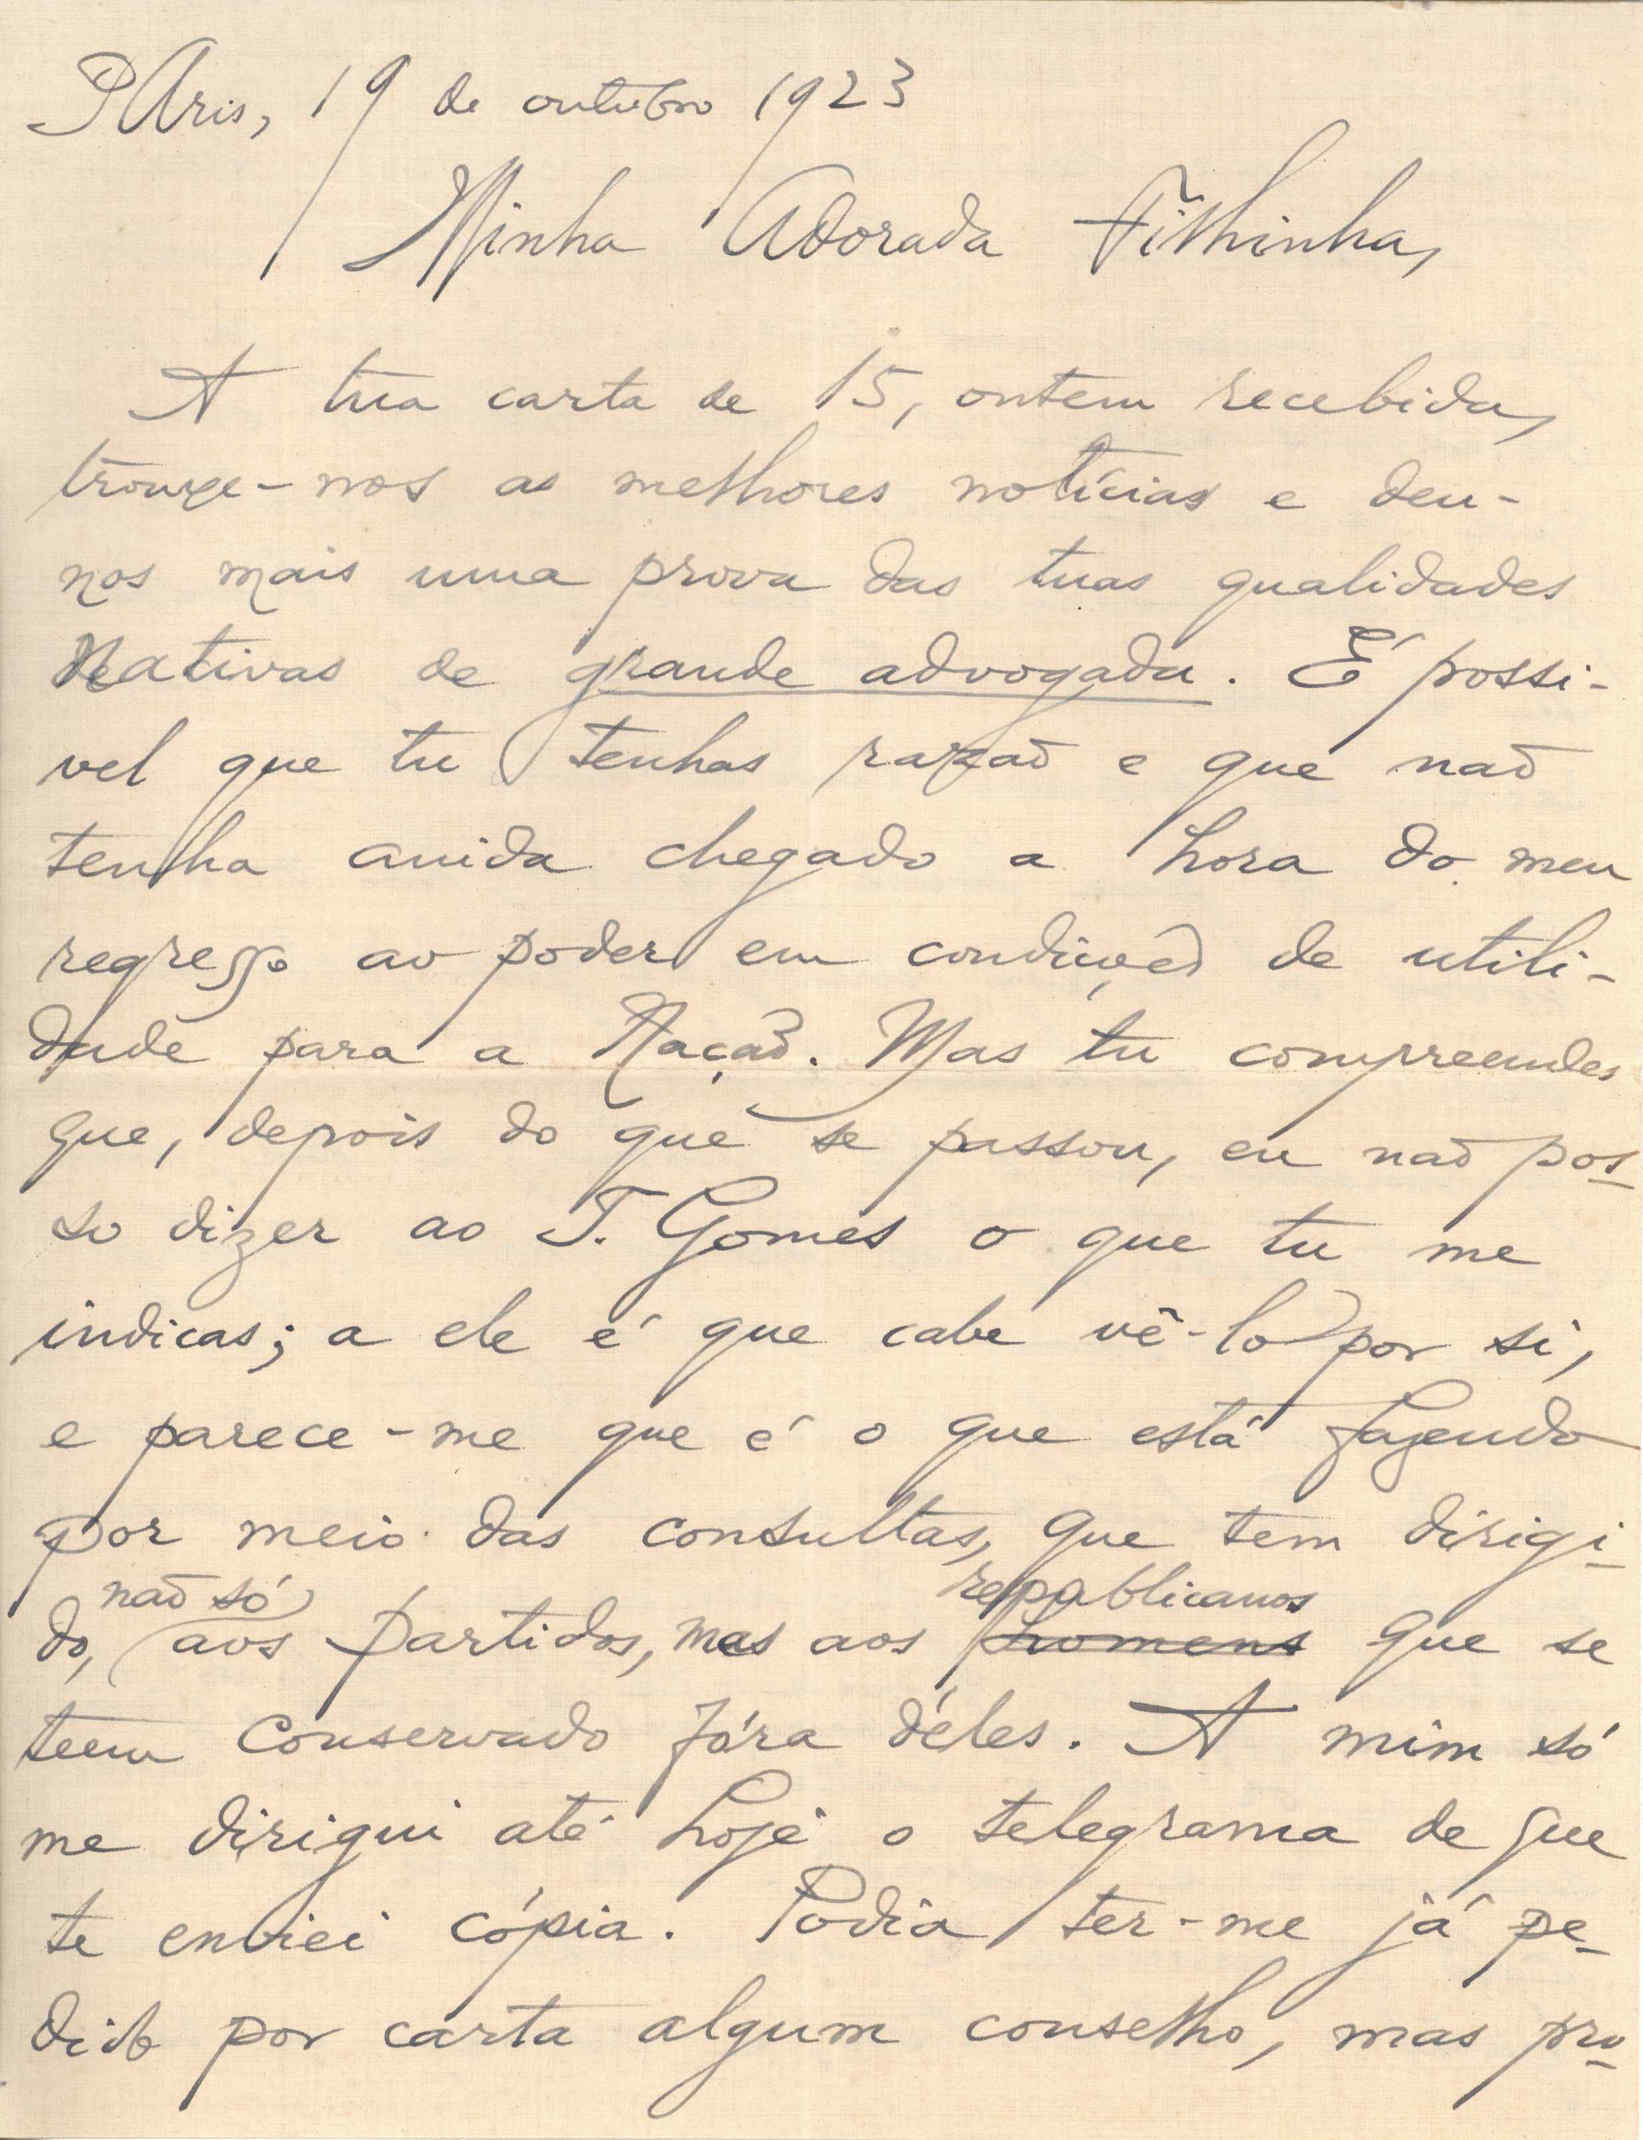 Paris, 19 de outubro 1923
Minha Adorada Filhinha,
A tua carta de 15, ontem recebida,
trouxe-nos as melhores notícias e deu-
nos mais uma prova das tuas qualidades
nativas de grande advogada. É possi-
vel que tu tenhas razaõ e que naõ
tenha ainda chegado a hora do meu
regresso ao poder em condições de utili-
dade para a Naçaõ. Mas tu compreendes
que, depois do que se passou, eu naõ pos-
so dizer ao T. Gomes o que tu me
indicas; a ele é que cabe vê-lo por si,
e parece-me que é o que está fazendo
por meio das consultas, que tem dirigi-
naõ só republicanos
do, aos partidos, mas aos homens que se
teem conservado fóra déles. A mim só
me dirigiu até hoje o telegrama de que
te enviei cópia. Podia ter-me já pe-
dido por carta algum conselho, mas pro-